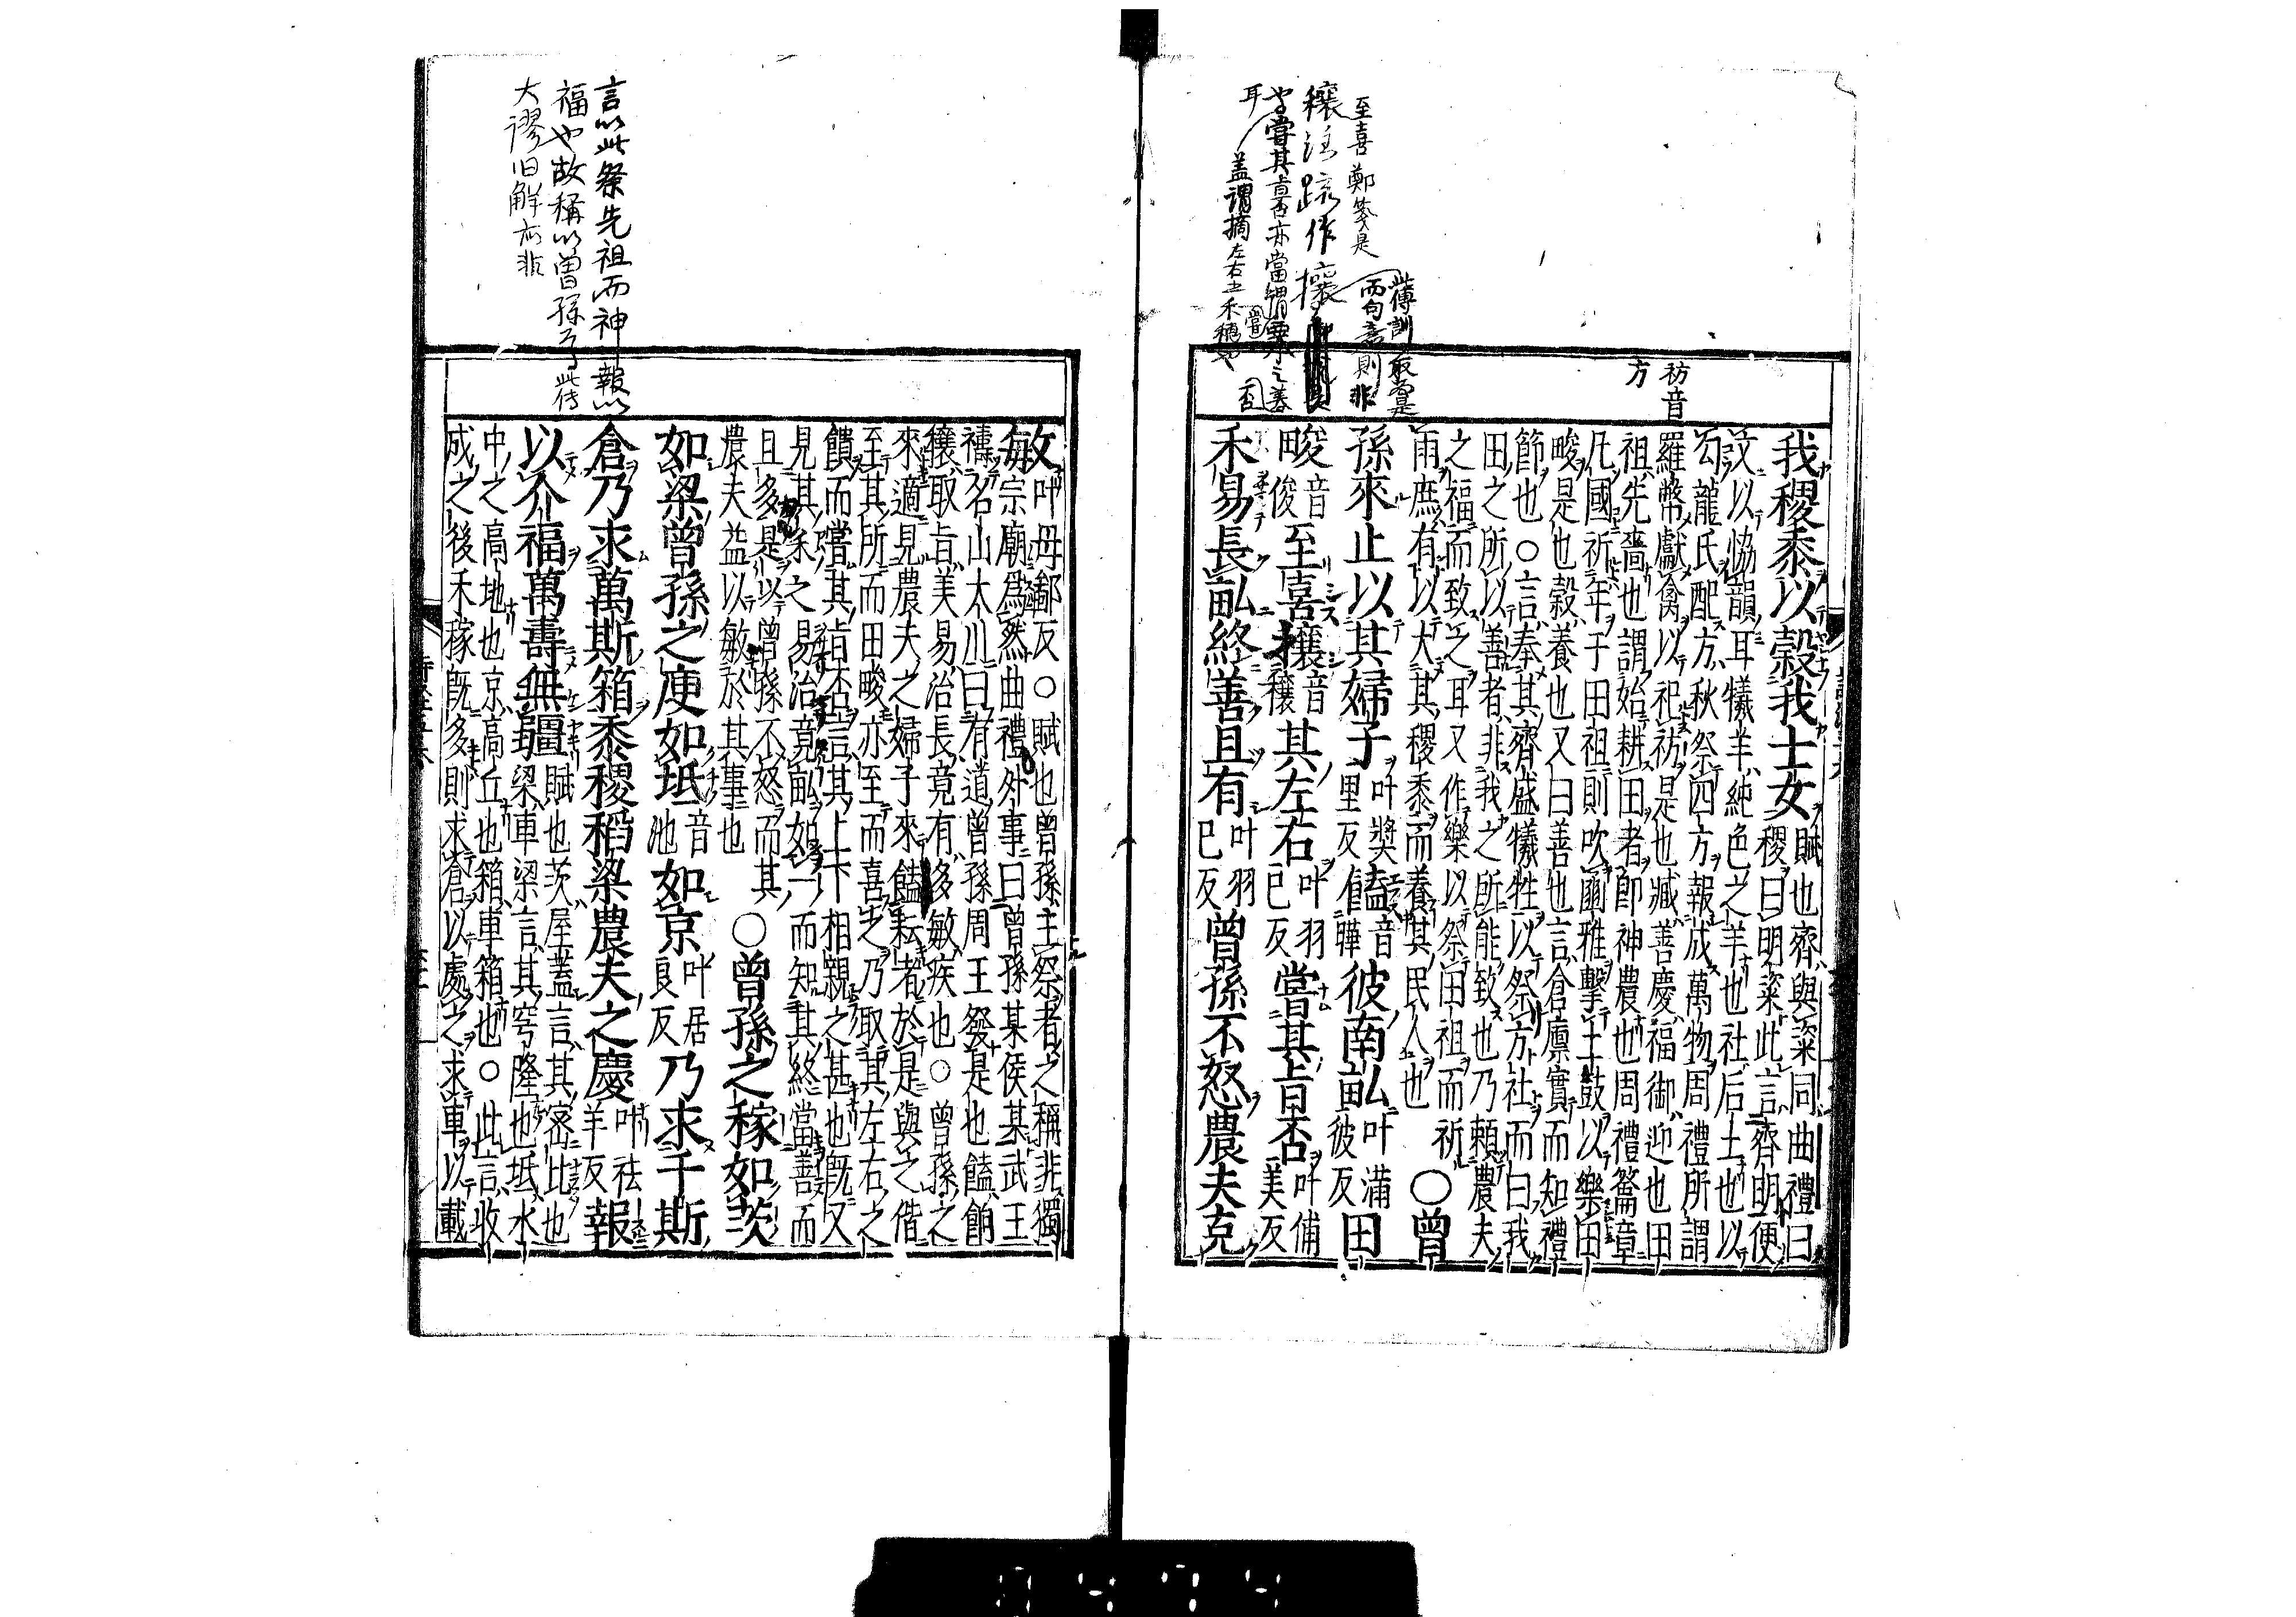 至喜鄭箋是
此傳訓取為是
而句意則非
穰注疏作攘
耳
盖謂摘左右之禾穗也
祊音
方
我稷黍以穀我士女賦也齊與粢同曲禮曰
稷曰明粢此言齊明便
文以協韻耳犧羊純色之羊也社后土也以
勾龍氏配方秋祭四方報成萬物周禮所謂
羅幣獻禽以祀祊是也臧善慶福御迎也田
祖先嗇也謂始耕田者即神農也周禮籥章
凡國祈年于田祖則吹豳雅擊土鼓以樂田
畯是也穀養也又曰善也言倉廩實而知禮
節也○言奉其齊盛犧牲以祭方社而曰我
田之所以善者非我之所能致也乃賴農夫
之福而致之耳又作樂以祭田祖而祈
雨庶有以大其稷黍而養其民人也○曾
孫來止以其婦子叶獎里反饁音曄彼南畝叶滿彼反田
畯音俊至喜攘音穰其左右叶羽已反嘗其旨否叶補美反
禾易長畝終善且有叶羽已反曾孫不怒農夫克
言以此祭先祖而神報以
福也故稱以曾孫了此傳
大謬旧解亦非
敏叶母鄙反○賦也曾孫主祭者之稱非獨
宗廟爲然曲禮外事曰曾孫某侯某武王
禱名山大川曰有道曾孫周王發是也饁餉
攘取旨美易治長竟有多敏疾也○曾孫之
來適見農夫之婦子來饁耘者於是與之偕
至其所而田畯亦至而喜之乃取其左右之
饋而嘗其旨否言其上下相親之甚也既又
見其禾之易治竟畝如一而知其終當善而
且多是以曾孫不怒而其
農夫益以敏於其事也○曾孫之稼如茨
如梁曾孫之庾如坻音池如京叶居良反乃求千斯
倉乃求萬斯箱黍稷稻粱農夫之慶叶祛羊反報
以介福萬壽無疆賦也茨屋蓋言其密比也
梁車梁言其穹隆也坻水
中之高地也京高丘也箱車箱也○此言收
成之後禾稼既多則求倉以處之求車以載